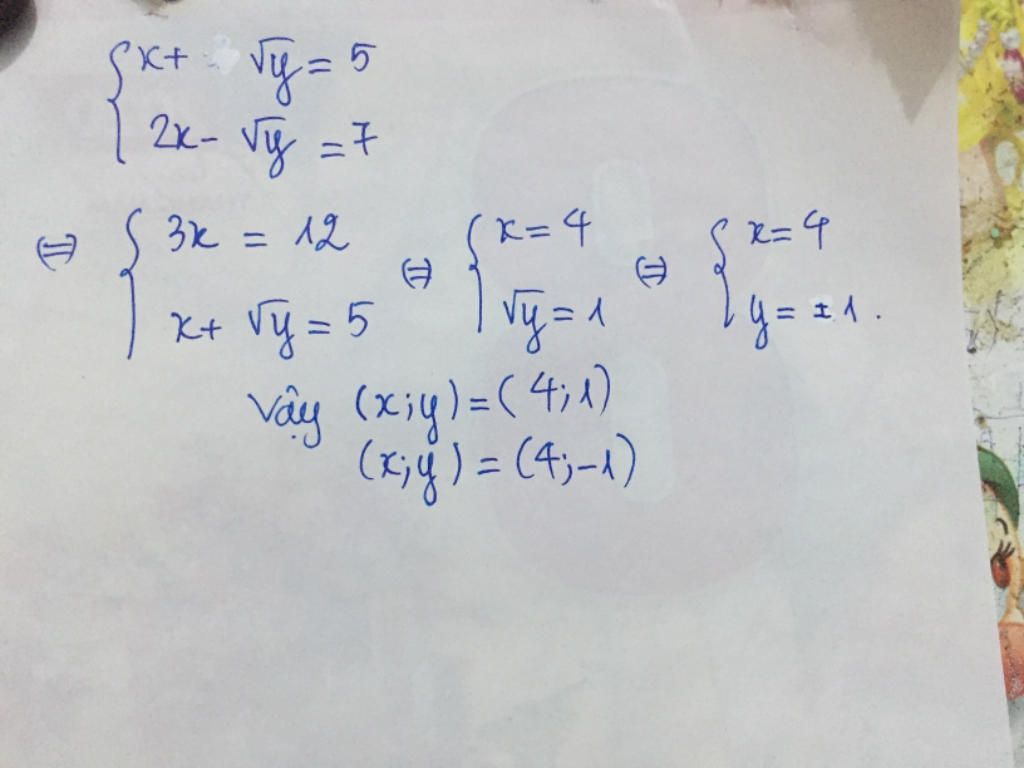 x + √y = 5
2x - √y = 7
⇔ { 3x = 12 ⇔ { x = 4 ⇔ { x = 4
x + √y = 5 √y = 1 y = ± 1 .
Vậy (x;y) = (4;1)
(x;y) = (4;-1)